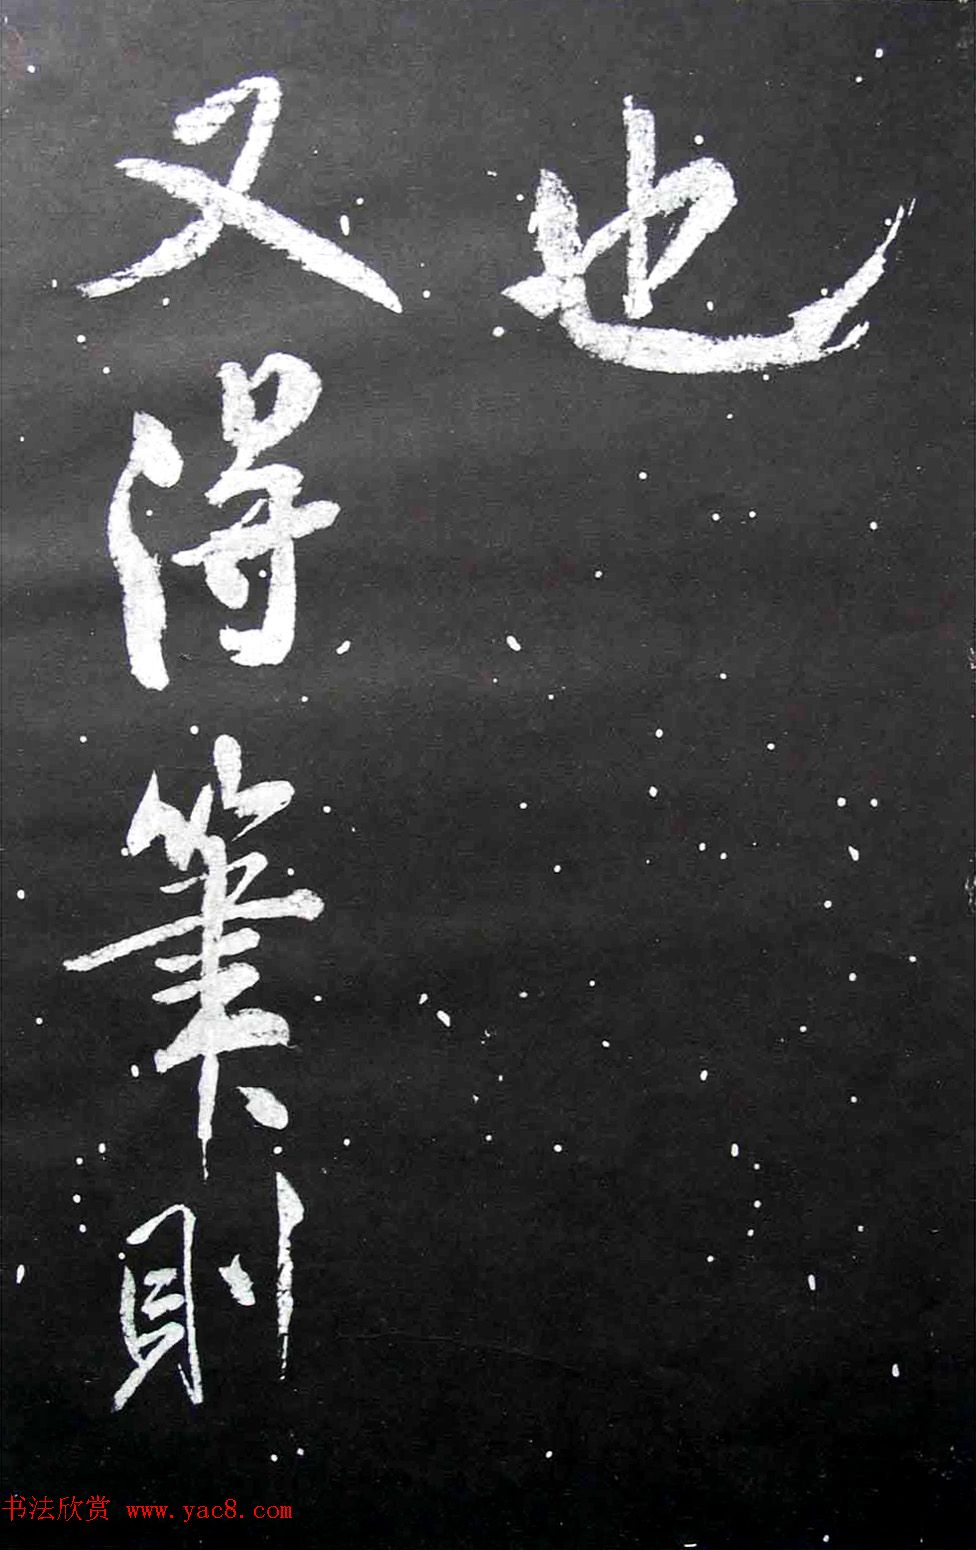 也
又得筆則
书法欣赏 www.yac8.com